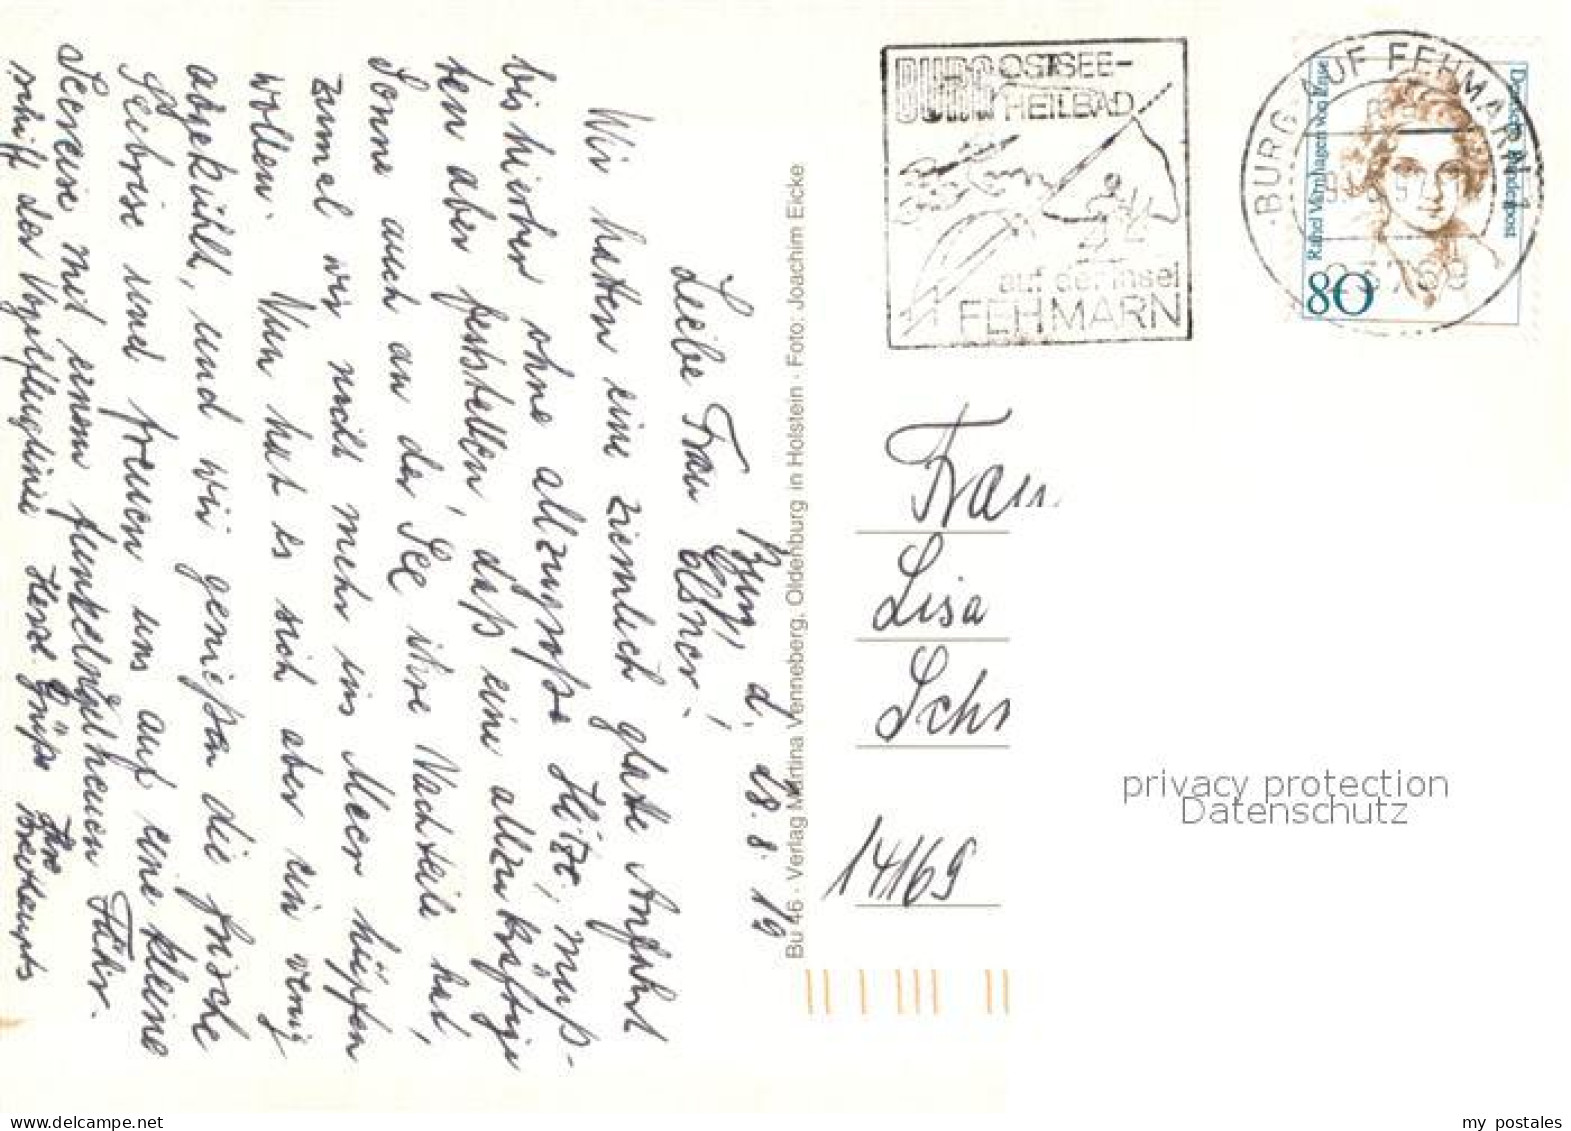 Burg, d. 28.8.19
Liebe Frau Elsner!
Wir hatten eine ziemlich glatte Anfahrt
bis hierher ohne allzugroße Hitze, muß-
ten aber feststellen, daß eine allzu kräftige
Sonne auch an der See ihre Nachteile hat,
zumal wir nicht mehr ins Meer hüpfen
wollen. Nun hat es sich aber ein wenig
abgekühlt, und wir genießen die frische
Seebrise und freuen uns auf eine kleine
Seereise mit einem funkelnagelneuen Fähr-
schiff der Vogelfluglinie Herzl. Grüße Ihre
Bu 46 · Verlag Martina Venneberg, Oldenburg in Holstein · Foto: Joachim Eicke
BURG OSTSEE-
HEILBAD
auf der Insel
FEHMARN
BURG AUF FEHMARN 1
23769
Deutsche Bundespost
Rahel Varnhagen von Ense
80
Frau
Lisa
Sch
14169
privacy protection
Datenschutz
my postales